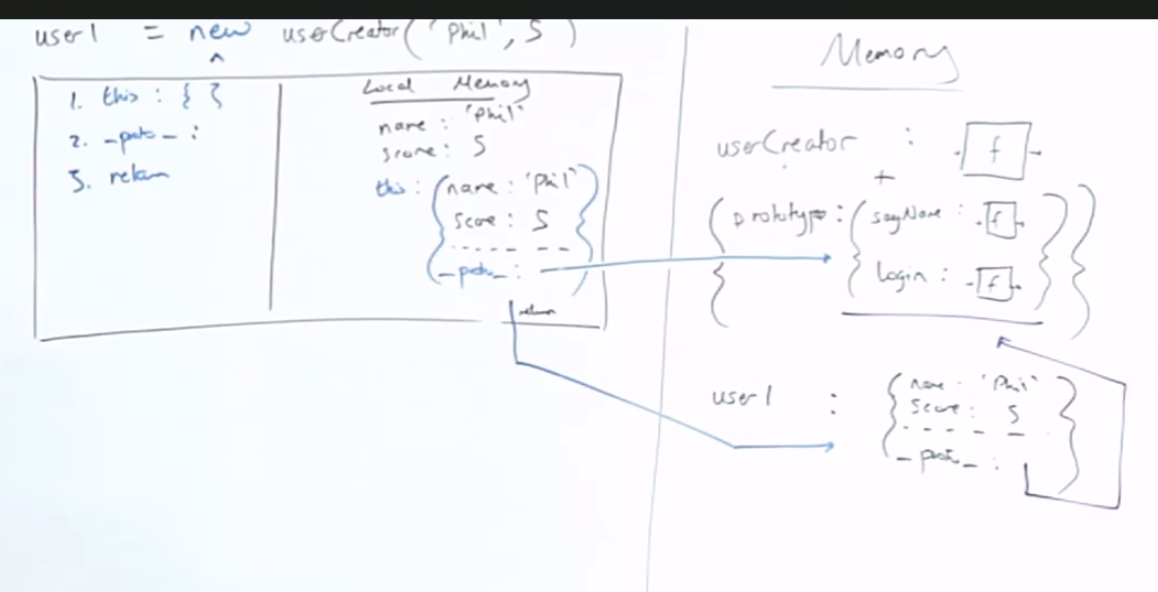 user1 = new userCreator('Phil', 5)
^
1. this : { }
2. _proto_ :
3. return
Local Memory
name : 'Phil'
score : 5
this : { name : 'Phil'
score : 5
- - - - - - -
_proto_ : }
return
Memory
userCreator : -[f]-
+
{ prototype : { sayName : -[f]-
login : -[f]- } }
user1 : { name : 'Phil'
score : 5
- - - - -
_proto_ : }